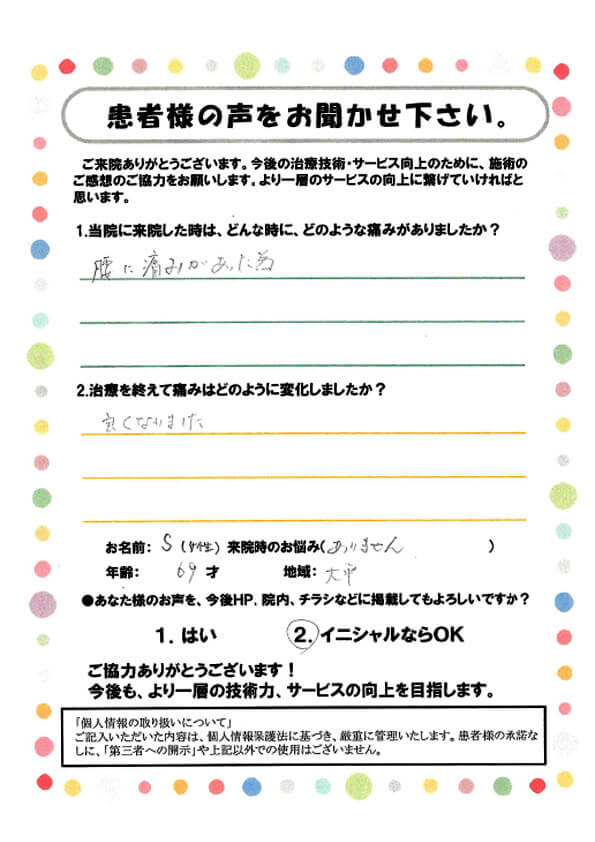 患者様の声をお聞かせ下さい。
ご来院ありがとうございます。今後の治療技術・サービス向上のために、施術の
ご感想のご協力をお願いします。より一層のサービスの向上に繋げていければと
思います。
1.当院に来院した時は、どんな時に、どのような痛みがありましたか？
腰に痛みがあった為
2.治療を終えて痛みはどのように変化しましたか？
良くなりました
お名前： S (女性) 来院時のお悩み(ありません )
年齢： 69 才 地域： 大平
●あなた様のお声を、今後HP．院内、チラシなどに掲載してもよろしいですか？
1. はい 2. イニシャルならOK
ご協力ありがとうございます！
今後も、より一層の技術力、サービスの向上を目指します。
「個人情報の取り扱いについて」
ご記入いただいた内容は、個人情報保護法に基づき、厳重に管理いたします。患者様の承諾な
しに、「第三者への開示」や上記以外での使用はございません。